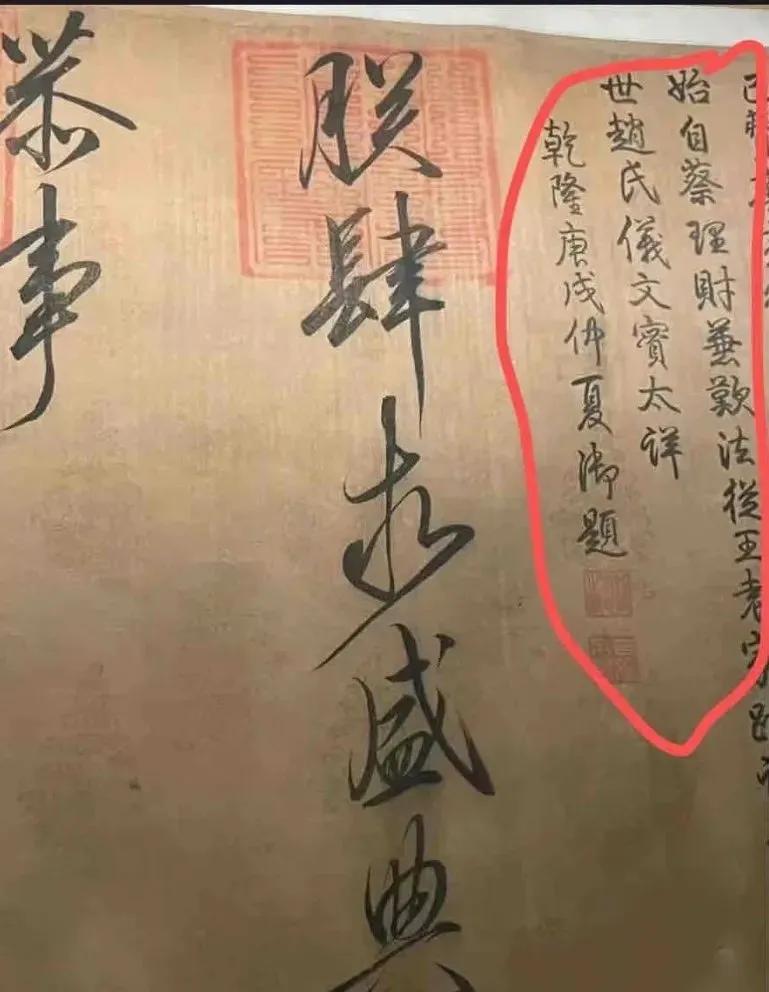 始自蔡理財兼歎法從王老家
世趙氏儀文賓太詳
乾隆庚戌仲夏御題
朕肆求盛典
恭事